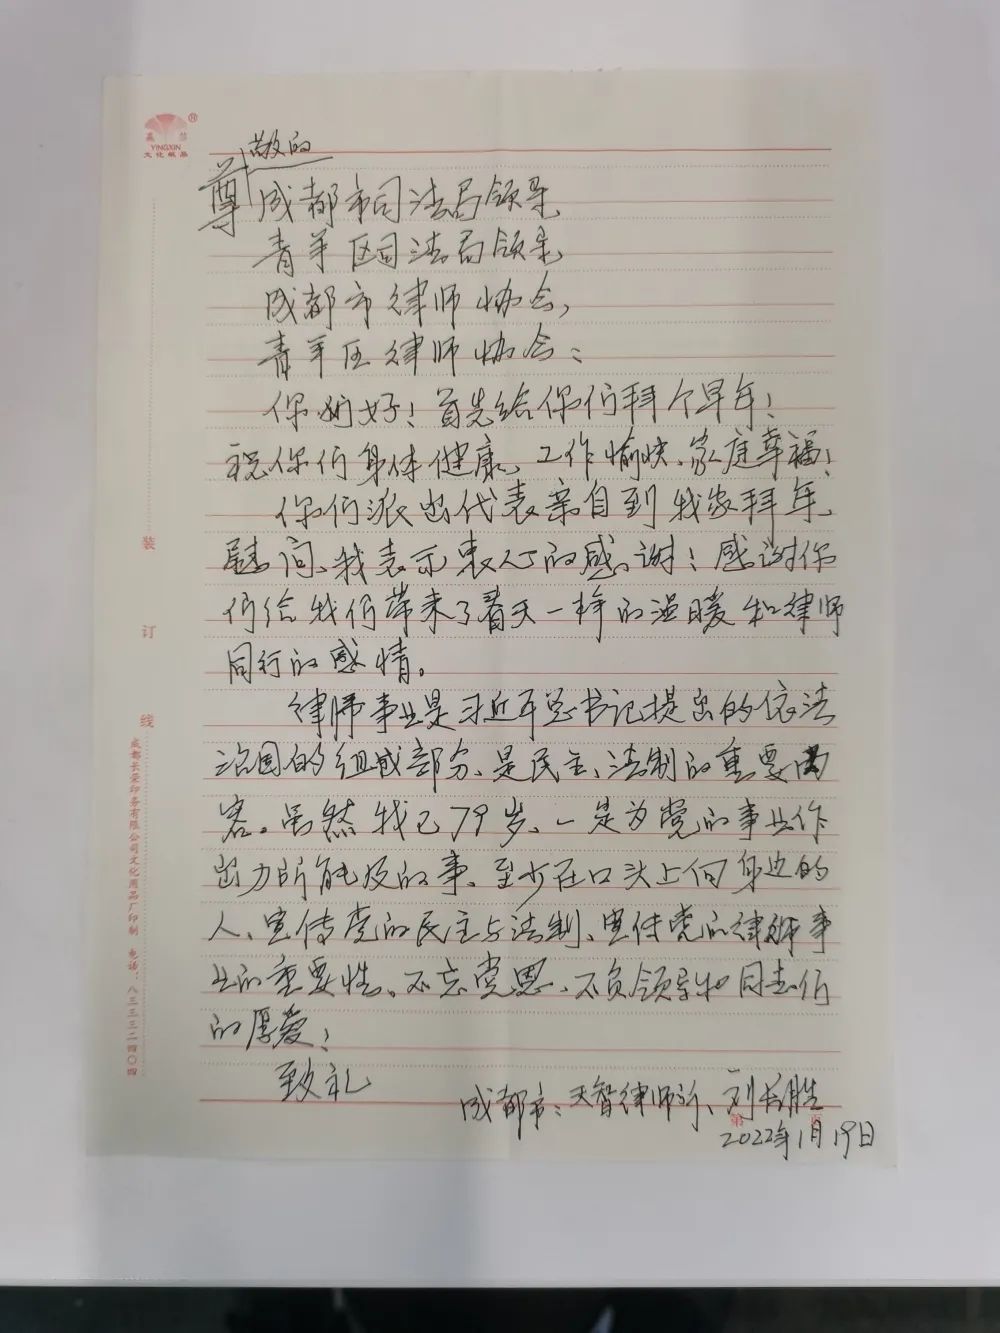 嬴芯
YINGXIN
文化纸品
尊敬的
成都市司法局领导
青羊区司法局领导
成都市律师协会,
青羊区律师协会:
你们好!首先给你们拜个早年!
祝你们身体健康、工作愉快、家庭幸福!
你们派出代表亲自到我家拜年、
慰问、我表示衷心的感谢!感谢你
们给我们带来了春天一样的温暖和律师
同行的感情。
律师事业是习近平总书记提出的依法
治国的组成部分、是民主、法制的重要内
容。虽然我已79岁、一定为党的事业作
出力所能及的事、至少在口头上向身边的
人、宣传党的民主与法制、宣传党的律师事
业的重要性。不忘党恩、不负领导和同志们
的厚爱!
致礼
成都市:天智律师所、刘长胜
2022年1月19日
装
订
线
成都长荣印务有限公司文化用品厂印制 电话:八三三三二四〇四
第 页